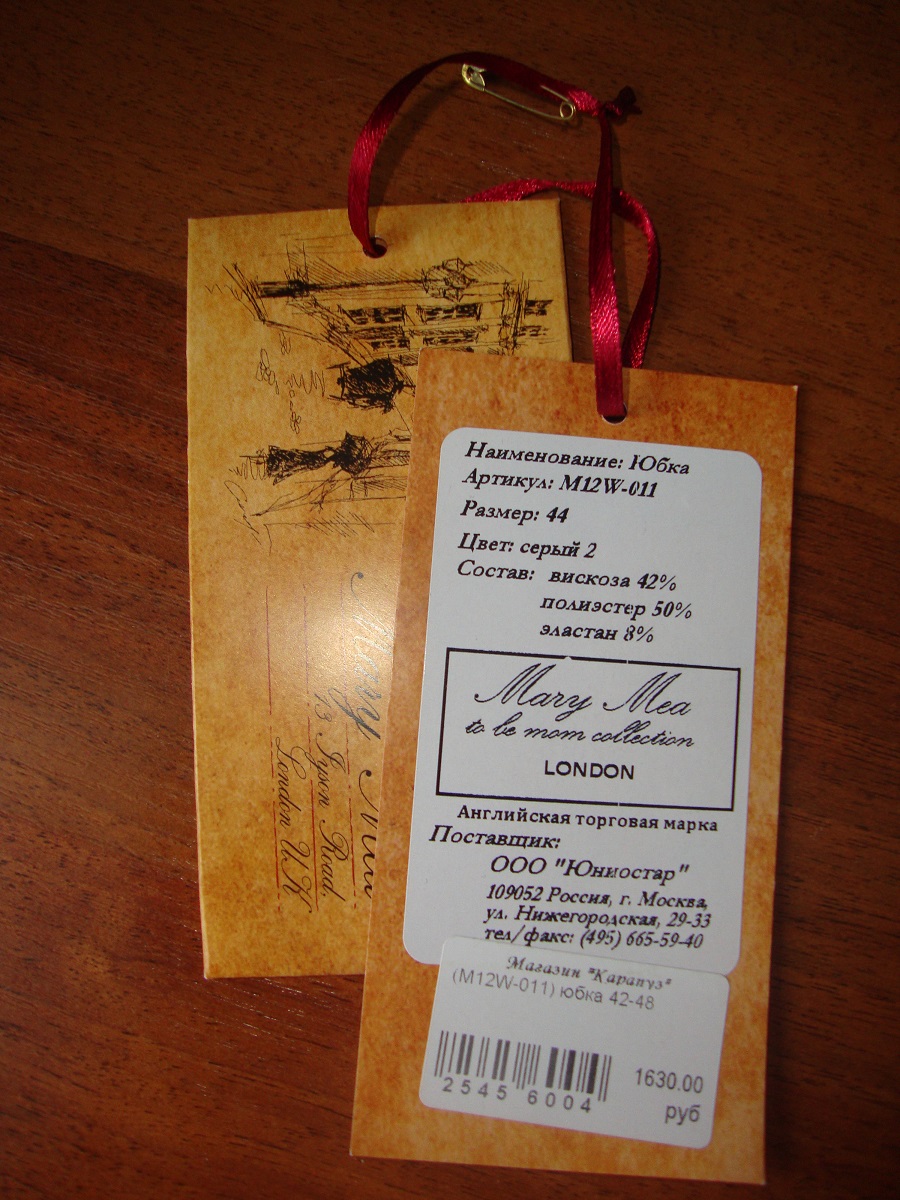 Наименование: Юбка
Артикул: M12W-011
Размер: 44
Цвет: серый 2
Состав: вискоза 42%
полиэстер 50%
эластан 8%
Mary Mea
to be mom collection
LONDON
Английская торговая марка
Поставщик:
ООО "Юниостар"
109052 Россия, г. Москва,
ул. Нижегородская, 29-33
тел/факс: (495) 665-59-40
Магазин "Карапуз"
(M12W-011) юбка 42-48
2545 6004
1630.00
руб
Mary
13 Jyson Road,
London U.K